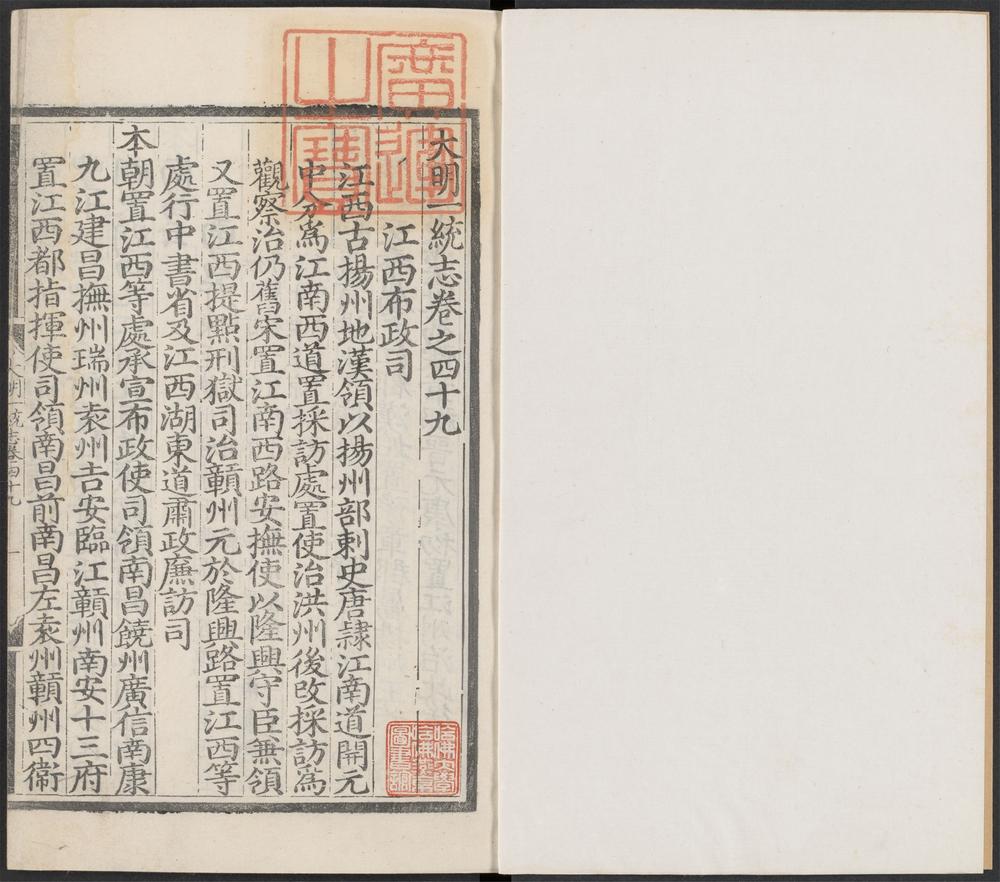 廣運之寶
大明一統志卷之四十九
江西布政司
江西古揚州地漢領以揚州部刺史唐隷江南道開元
中分爲江南西道置採訪處置使治洪州後攺採訪爲
觀察治仍舊宋置江南西路安撫使以隆興守臣兼領
又置江西提點刑獄司治贑州元於隆興路置江西等
處行中書省及江西湖東道肅政廉訪司
本朝置江西等處承宣布政使司領南昌饒州廣信南康
九江建昌撫州瑞州袁州吉安臨江贑州南安十三府
置江西都指揮使司領南昌前南昌左袁州贑州四衛
大明一統志卷四十九
哈佛大學
哈佛燕京
圖書館